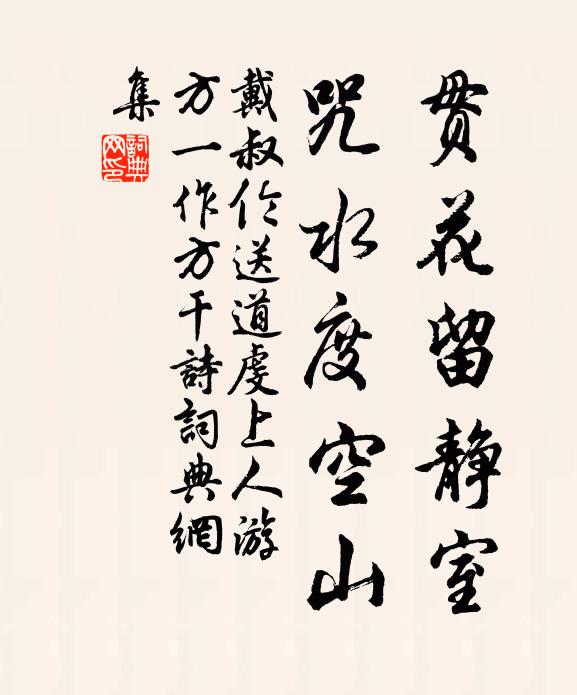 贯花留静室
咒水度空山
戴叔伦送道虔上人游
方一作方干詩詞典網
集
詞典網印